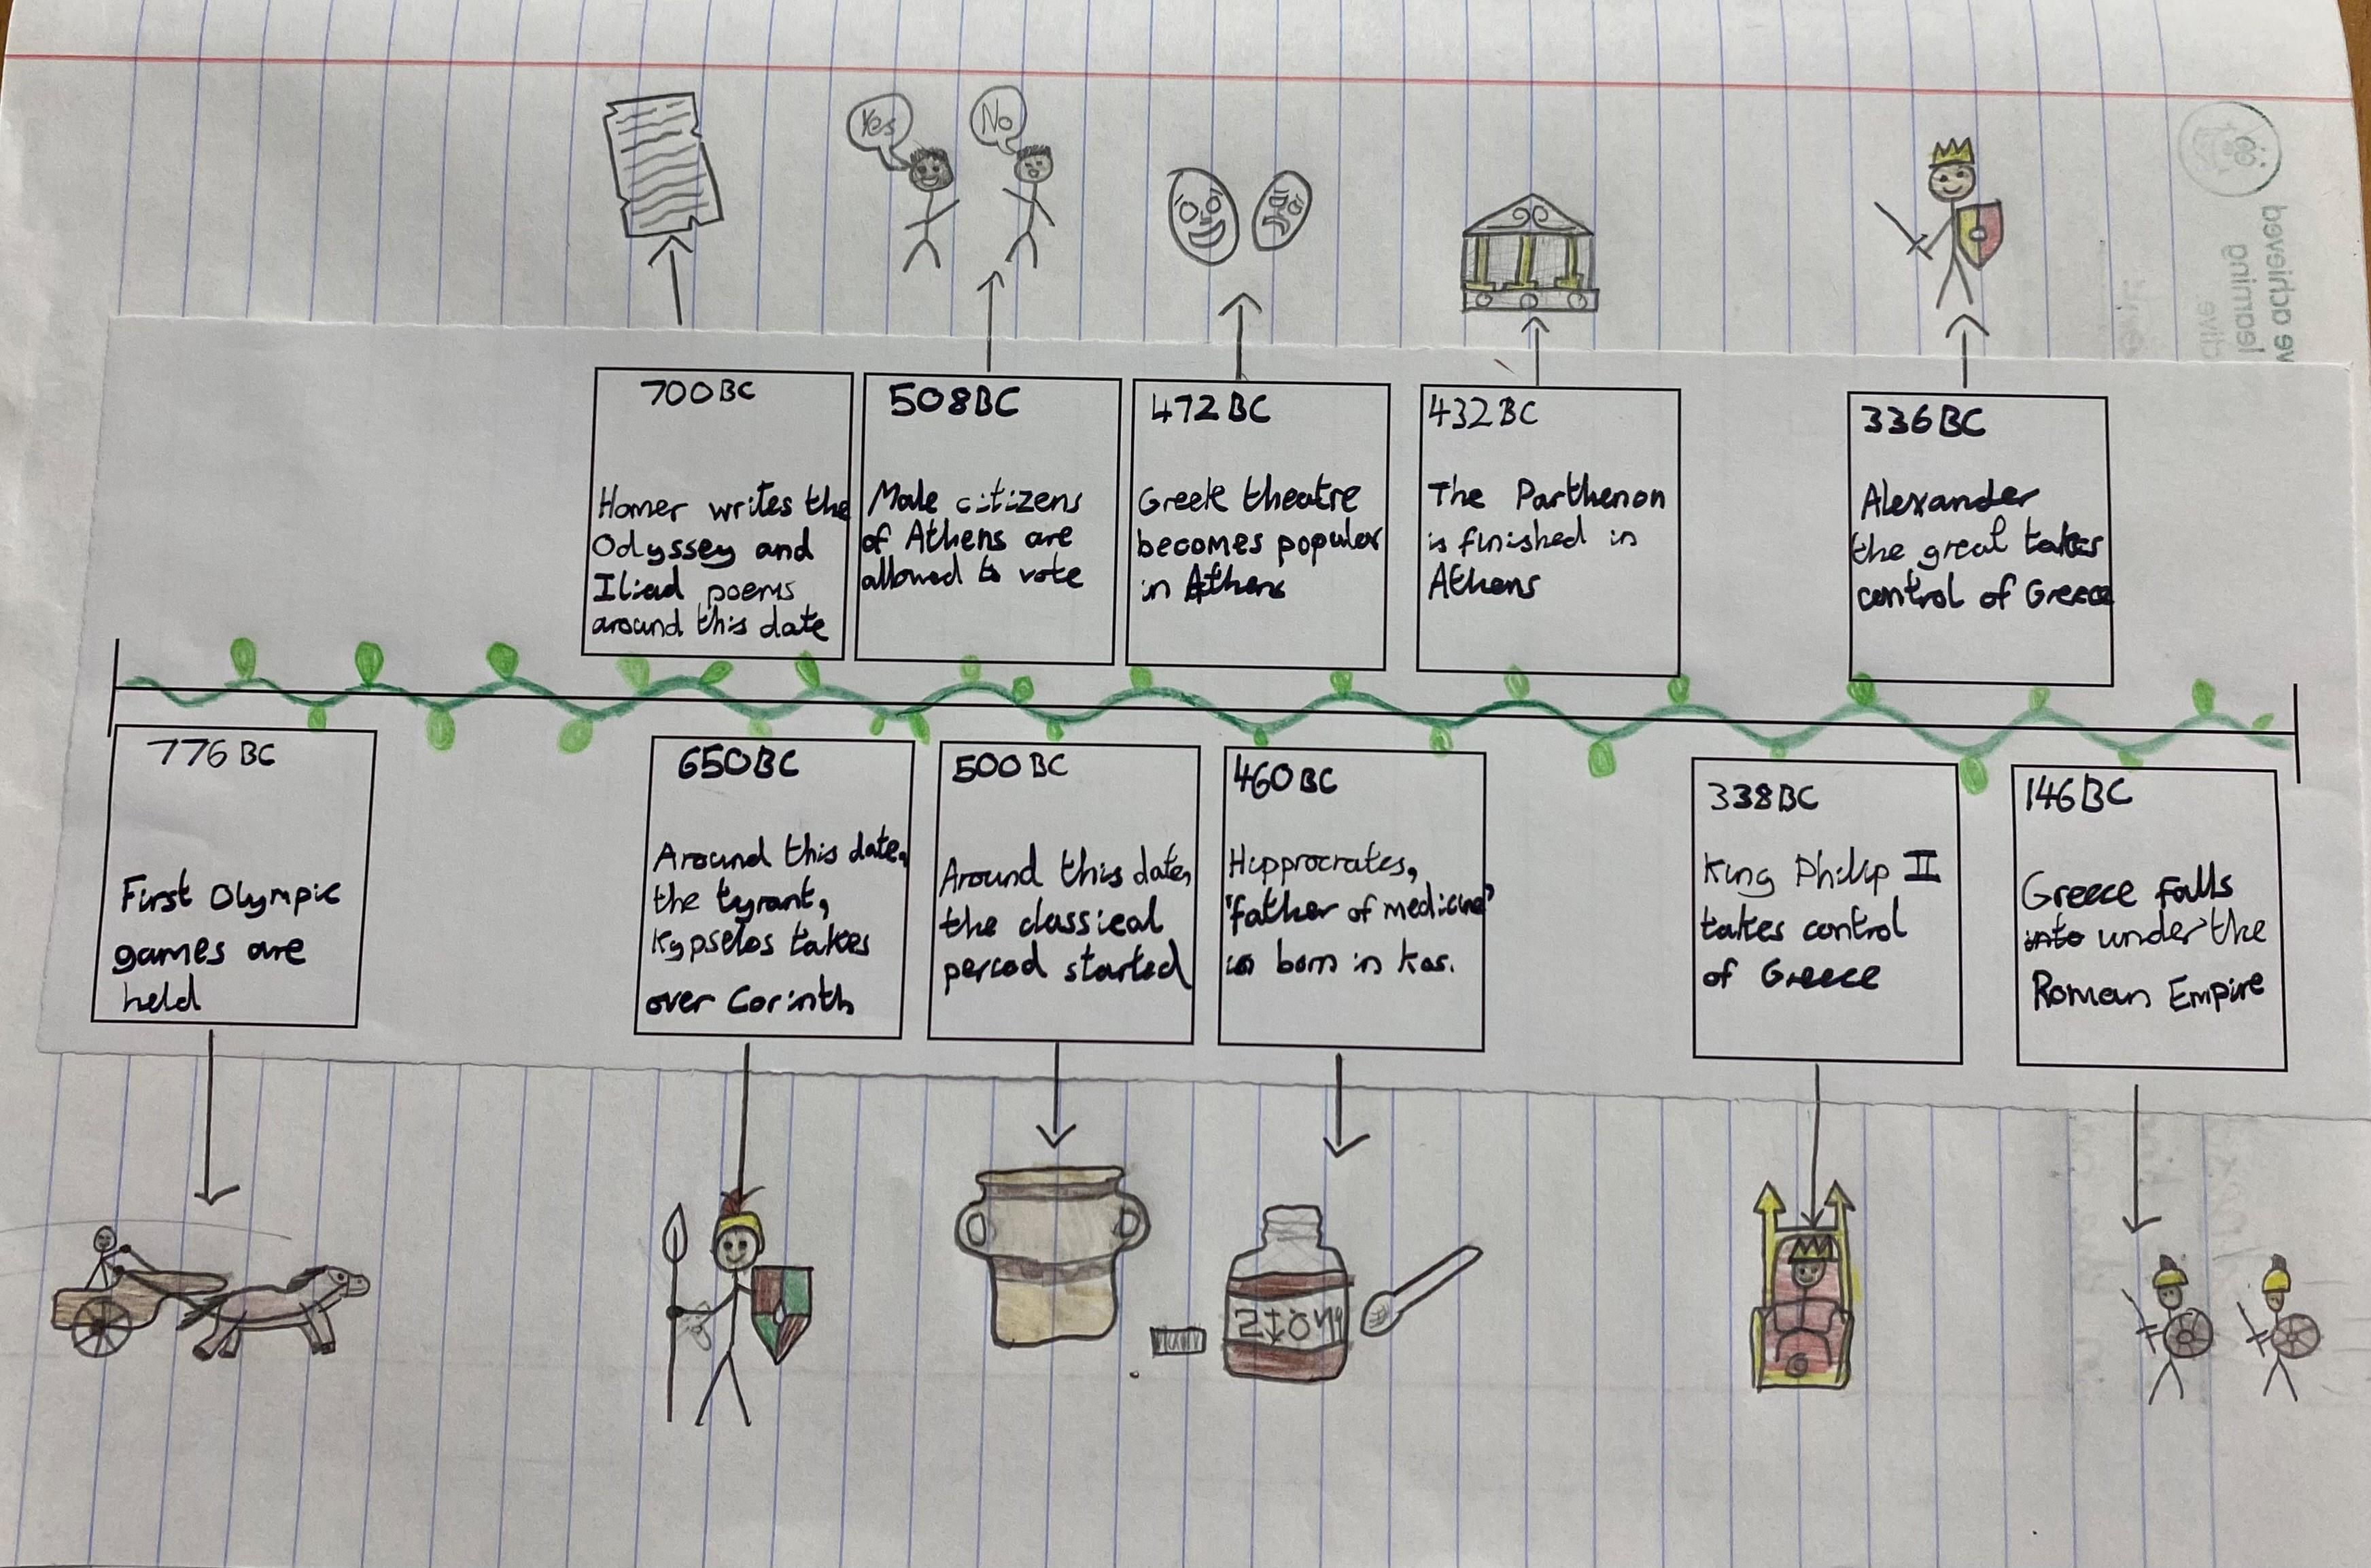 Yes
No
700BC
Homer writes the
Odyssey and
Iliad poems
around this date
508BC
Male citizens
of Athens are
allowed to vote
472BC
Greek theatre
becomes popular
in Athens
432BC
The Parthenon
is finished in
Athens
336BC
Alexander
the great takes
control of Greece
776BC
First Olympic
games are
held
650BC
Around this date,
the tyrant,
Kypselos takes
over Corinth
500BC
Around this date,
the classical
period started
460BC
Hipprocrates,
'father of medicine'
is born in Kos.
338BC
King Philip II
takes control
of Greece
146BC
Greece falls
into under the
Roman Empire
learning
ve achieved